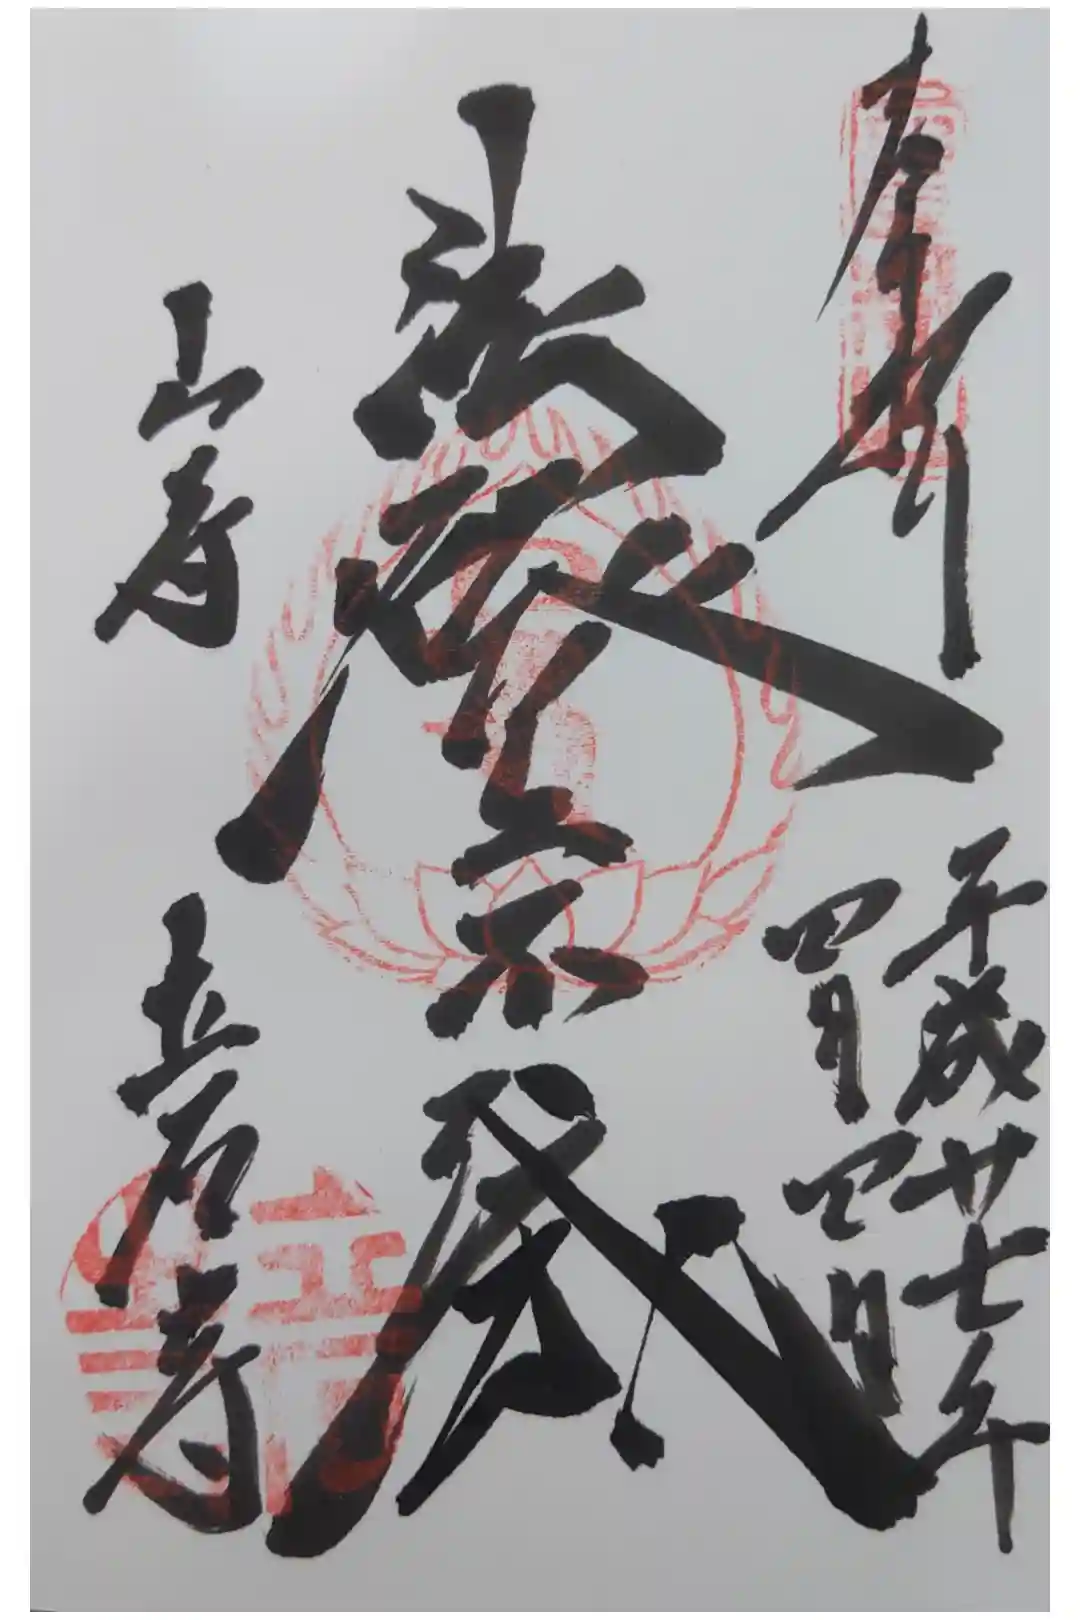 奉拝
平成廿七年
四月四日
法燈不滅
山寺
立石寺